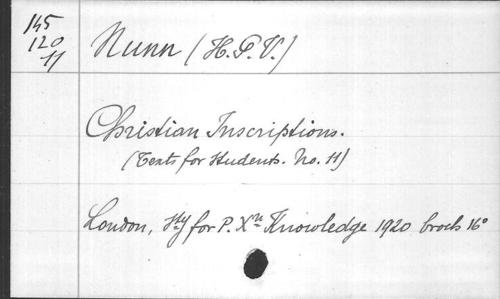 145
120
11
Nunn (H.P.V.)
Christian Inscriptions.
(Texts for Students. No. 11)
London, Sty for P. Xn Knowledge 1920 broch 16°